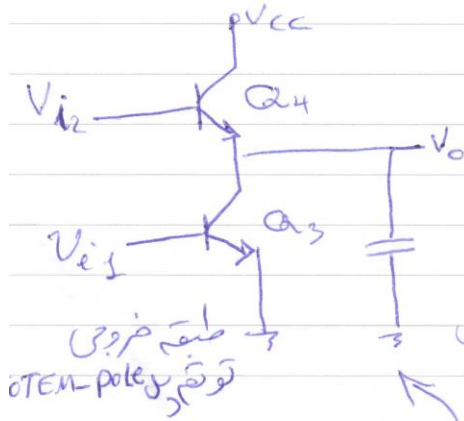 Vcc
Vi2
Q4
Vo
Vi1
Q3
طبقه خروجی
توتم پل OTEM-pole